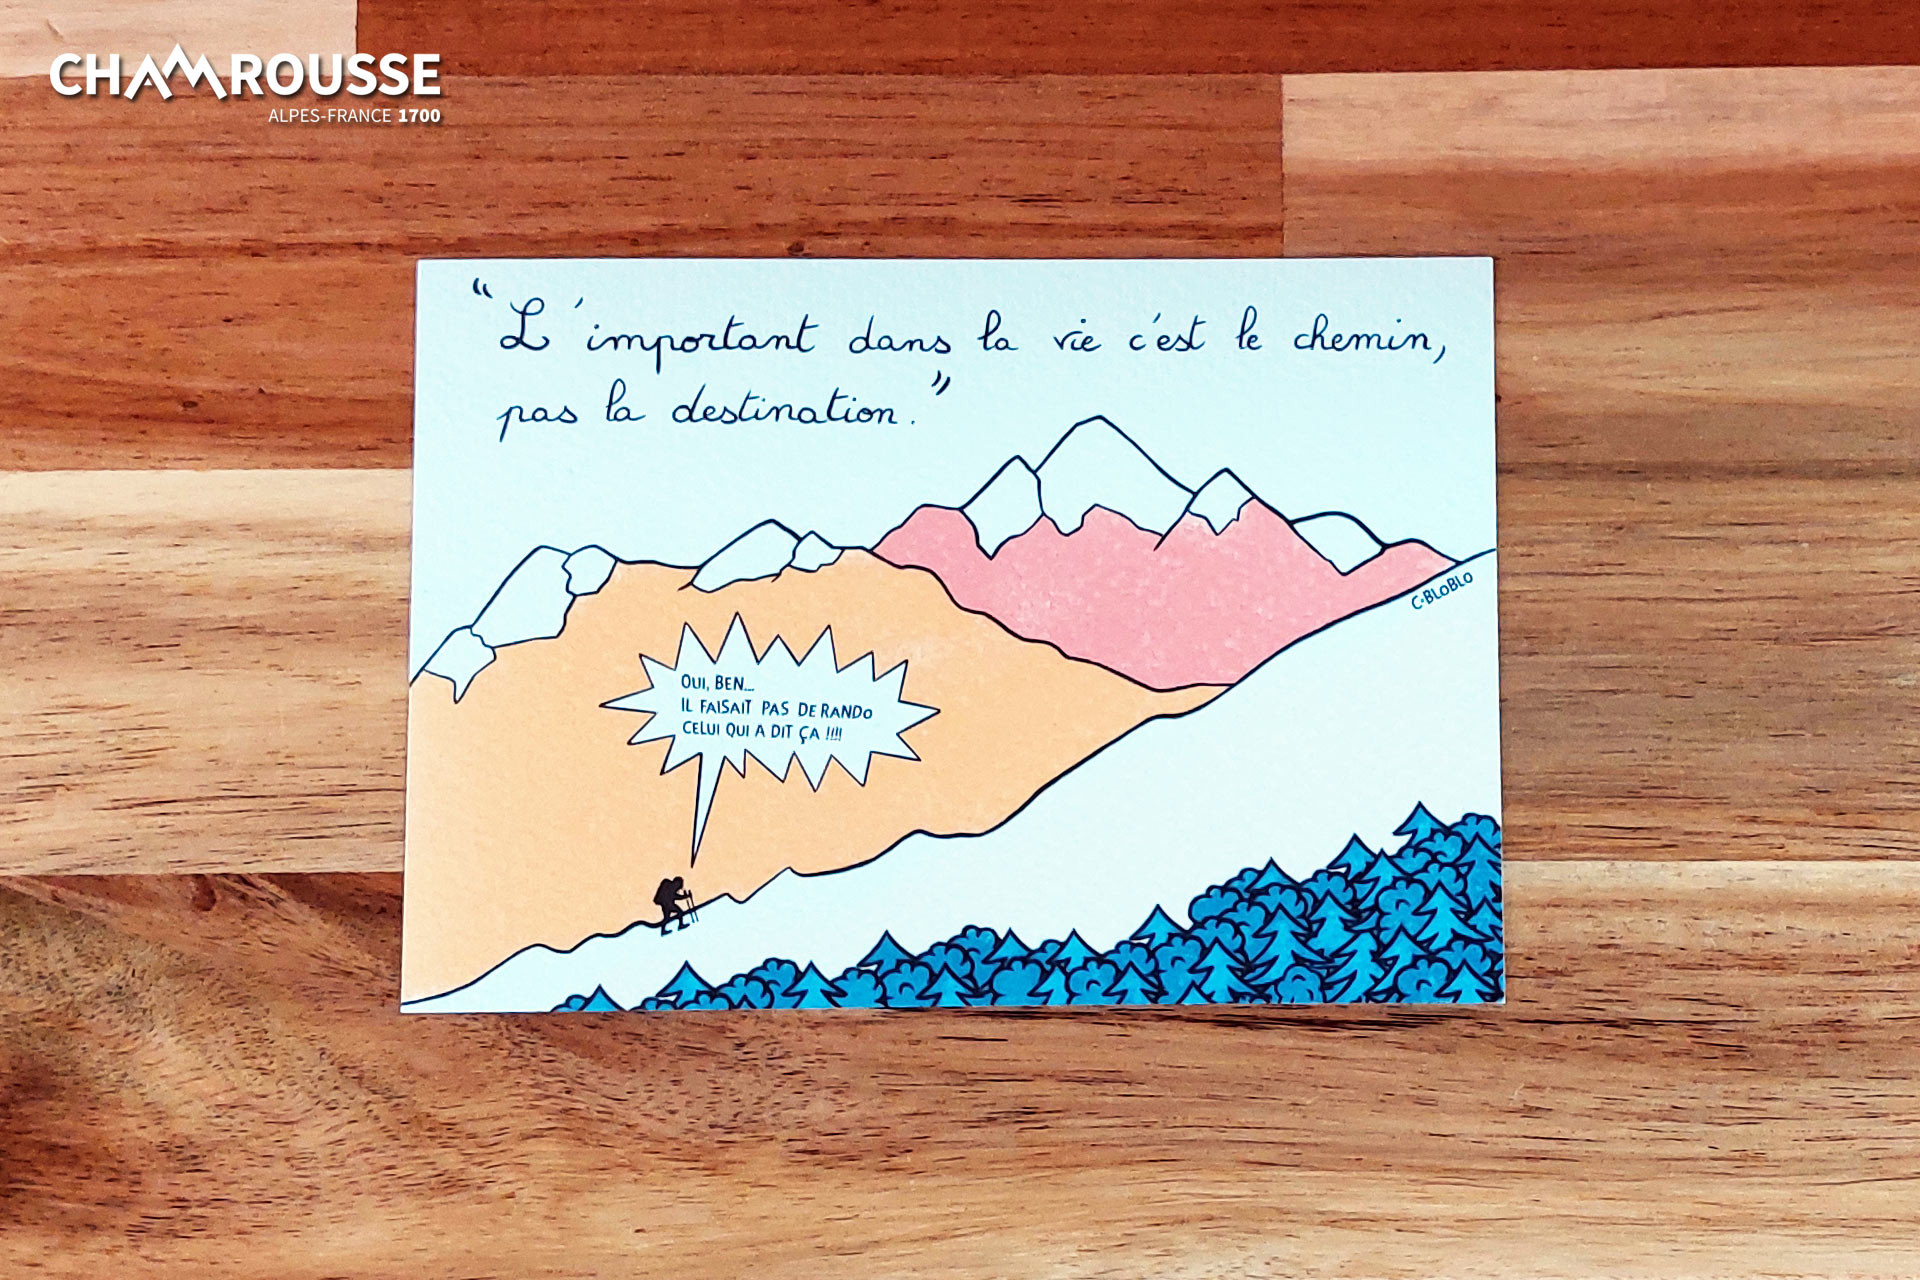 CHAMROUSSE
ALPES-FRANCE 1700
“ L'important dans la vie c'est le chemin,
pas la destination. ”
OUI, BEN...
IL FAISAIT PAS DE RANDO
CELUI QUI A DIT ÇA !!!!
C·BLOBLO